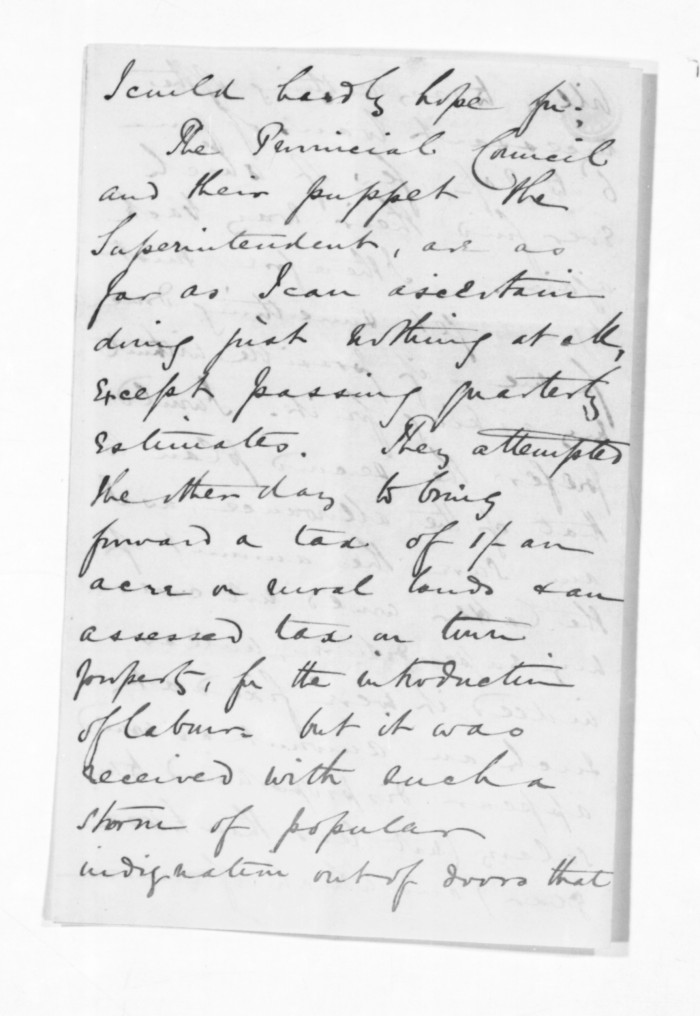 I could hardly hope for.
The Provincial Council
and their puppet the
Superintendent, are as
far as I can ascertain
doing just nothing at all,
except passing quarterly
Estimates. They attempted
the other day to bring
forward a tax of 1/ an
acre on rural lands & an
assessed tax on town
property, for the introduction
of labour but it was
received with such a
storm of popular
indignation out of doors that